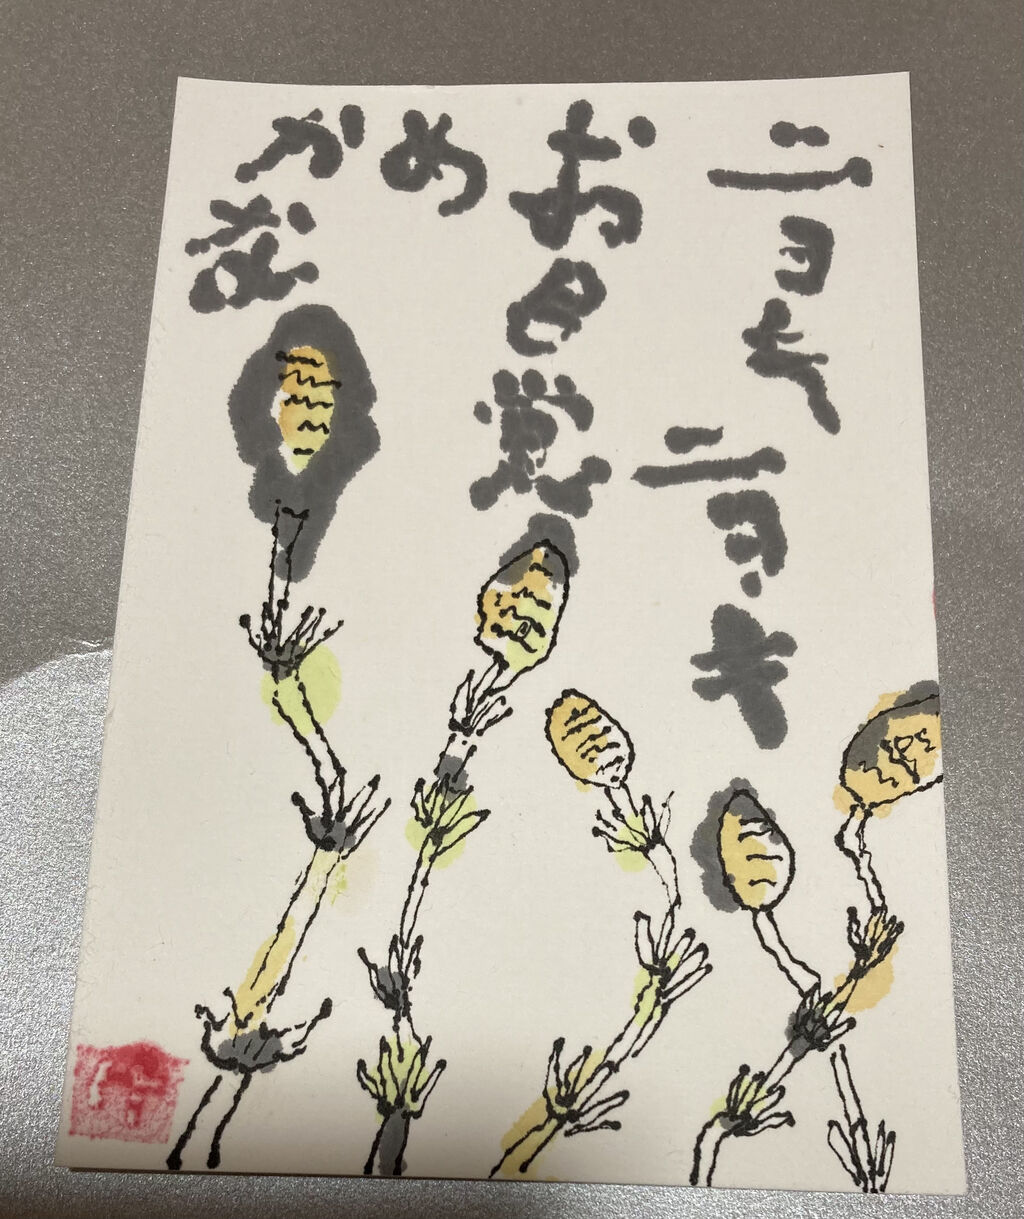 ニョキ
ニョキ
お目覚
め
かな